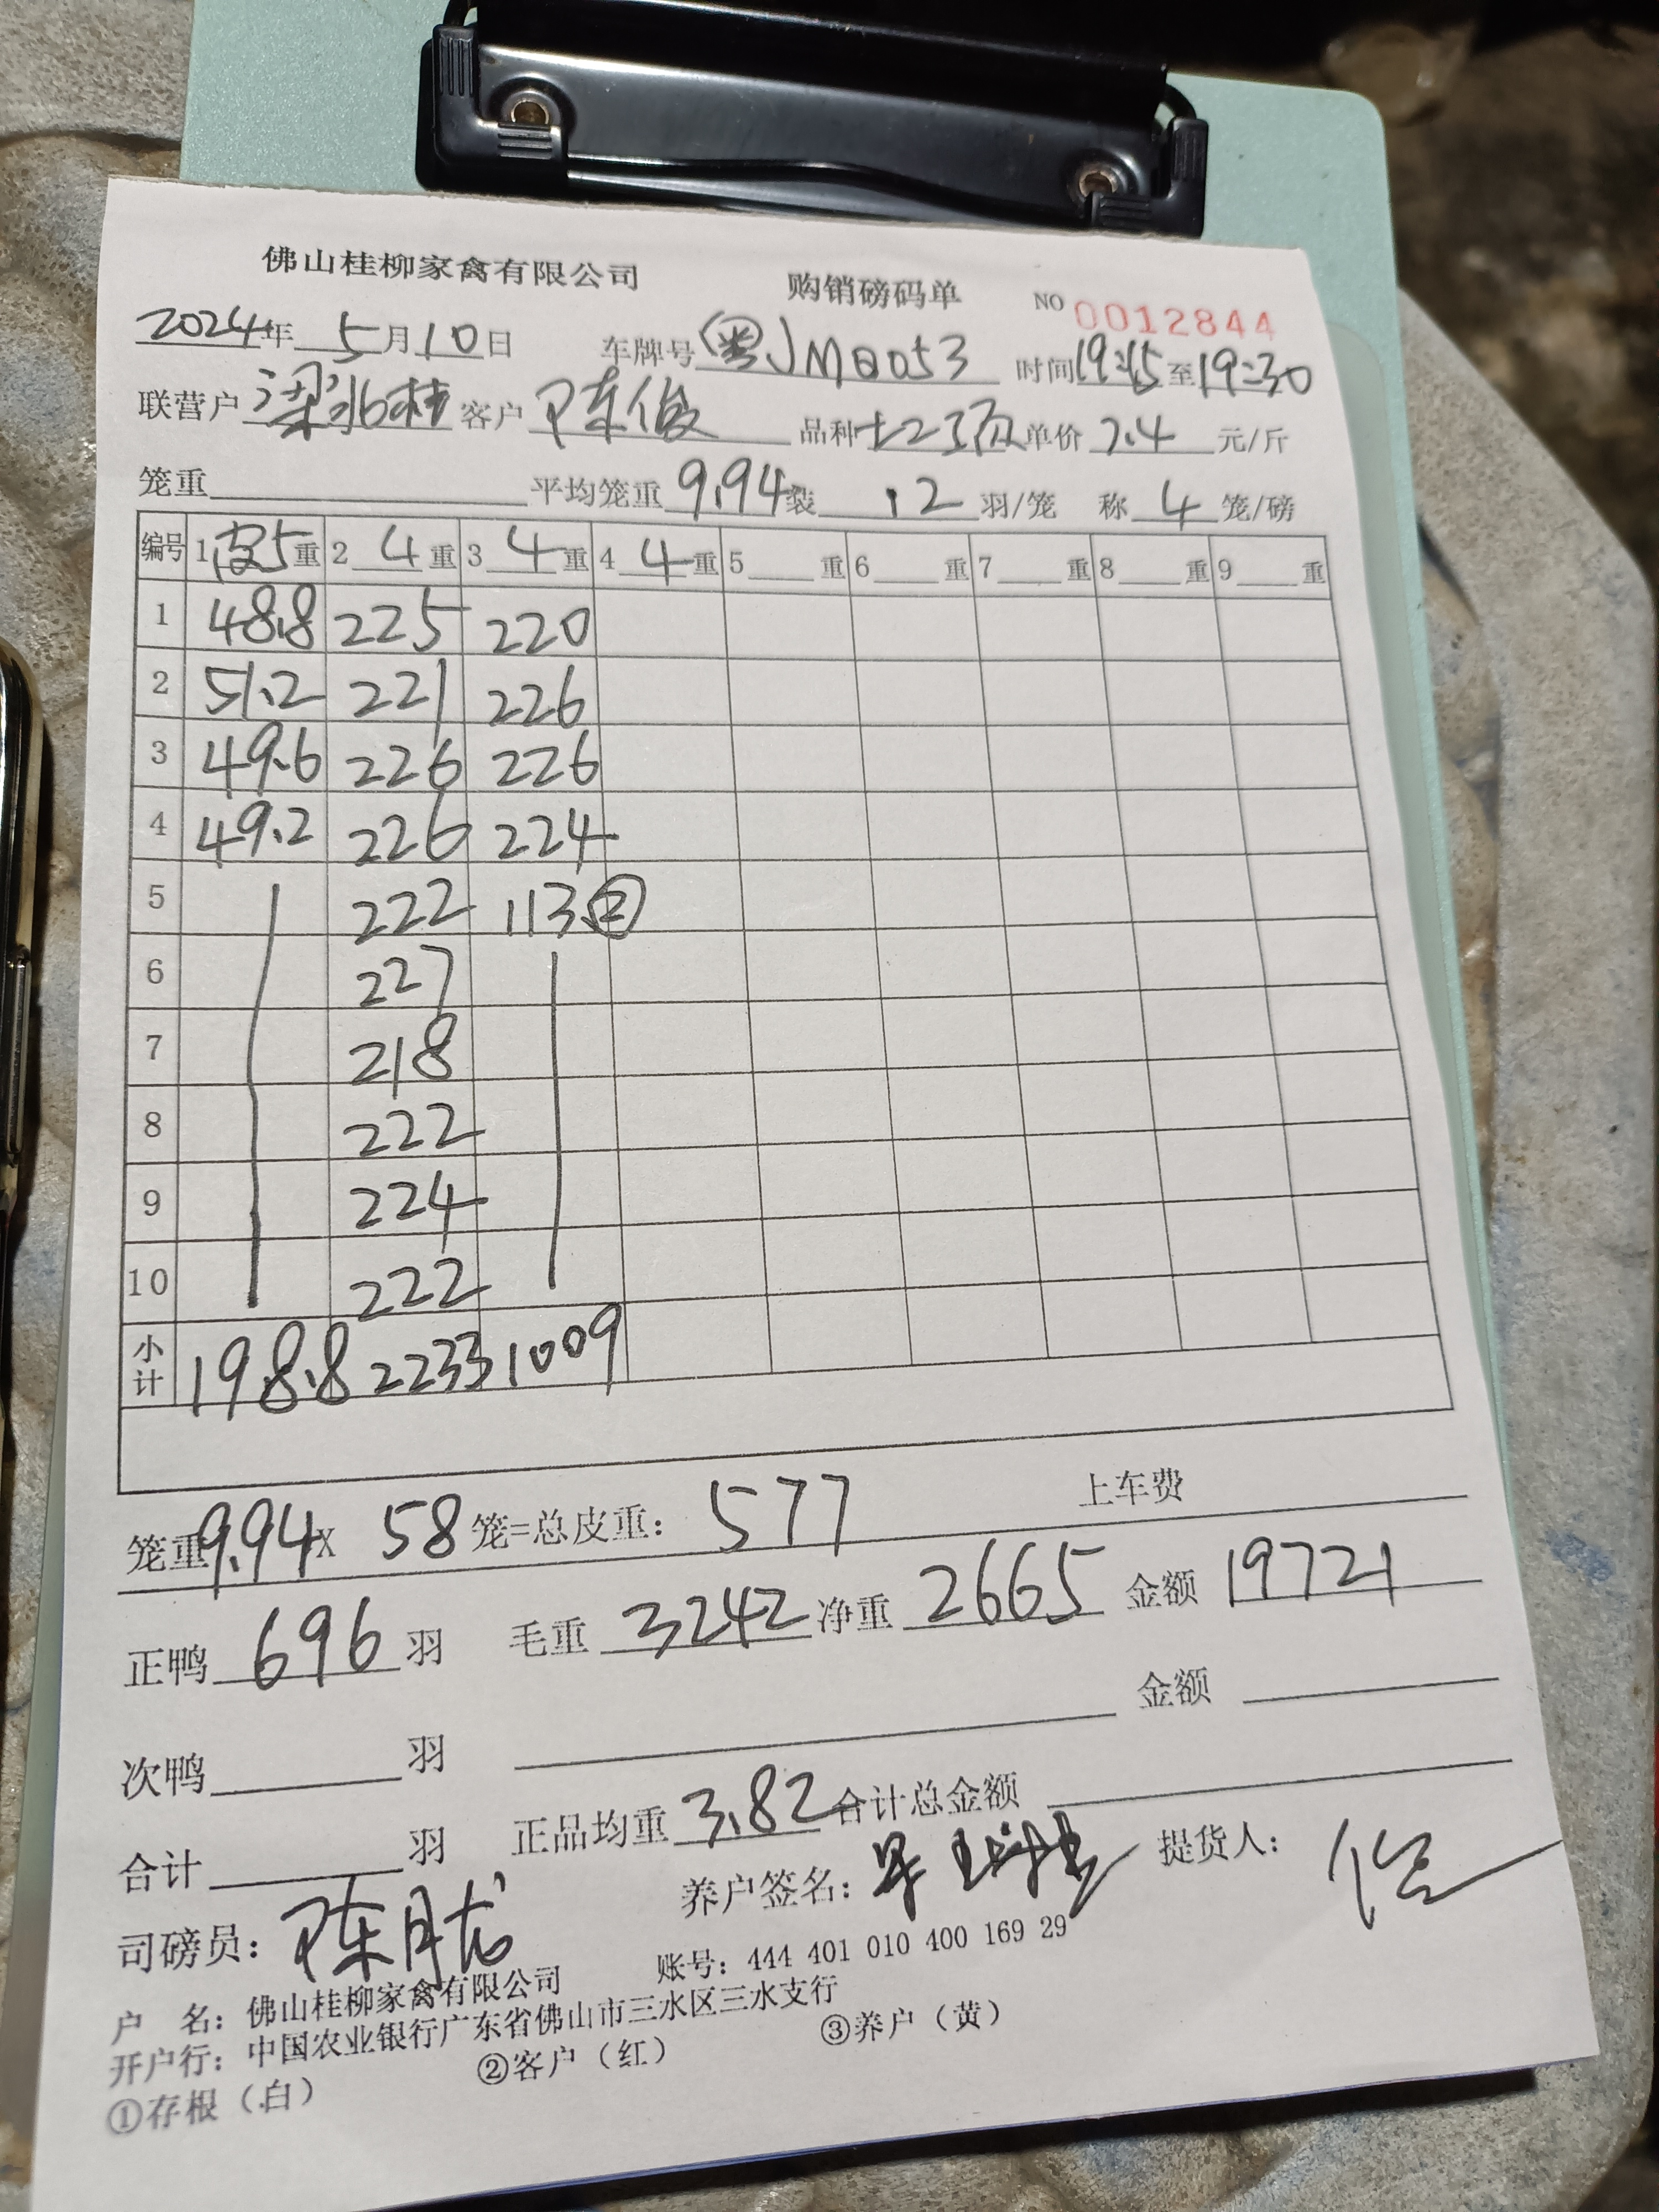 佛山桂柳家禽有限公司 购销磅码单 NO 0012844
2024年 5月10日 车牌号(粤)MQ053 时间19:15至19:30
联营户 客户 陈俊 品种 单价 7.4 元/斤
笼重 平均笼重 9.94 装 12 羽/笼 称 4 笼/磅
编号 1 皮5 重 2 4 重 3 4 重 4 4 重 5 重 6 重 7 重 8 重 9 重
1 48.8 225 220
2 51.2 221 226
3 49.6 226 226
4 49.2 226 224
5 222 113 ②
6 227
7 218
8 222
9 224
10 222
小计 198.8 2233 1009
笼重9.94X 58 笼=总皮重: 577 上车费
正鸭 696 羽 毛重 3242 净重 2665 金额 19721
次鸭 羽 金额
合计 羽 正品均重 3.82 合计总金额
司磅员: 陈月龙 养户签名: 提货人:
户 名: 佛山桂柳家禽有限公司 账号: 444 401 010 400 169 29
开户行: 中国农业银行广东省佛山市三水区三水支行
①存根(白) ②客户(红) ③养户(黄)